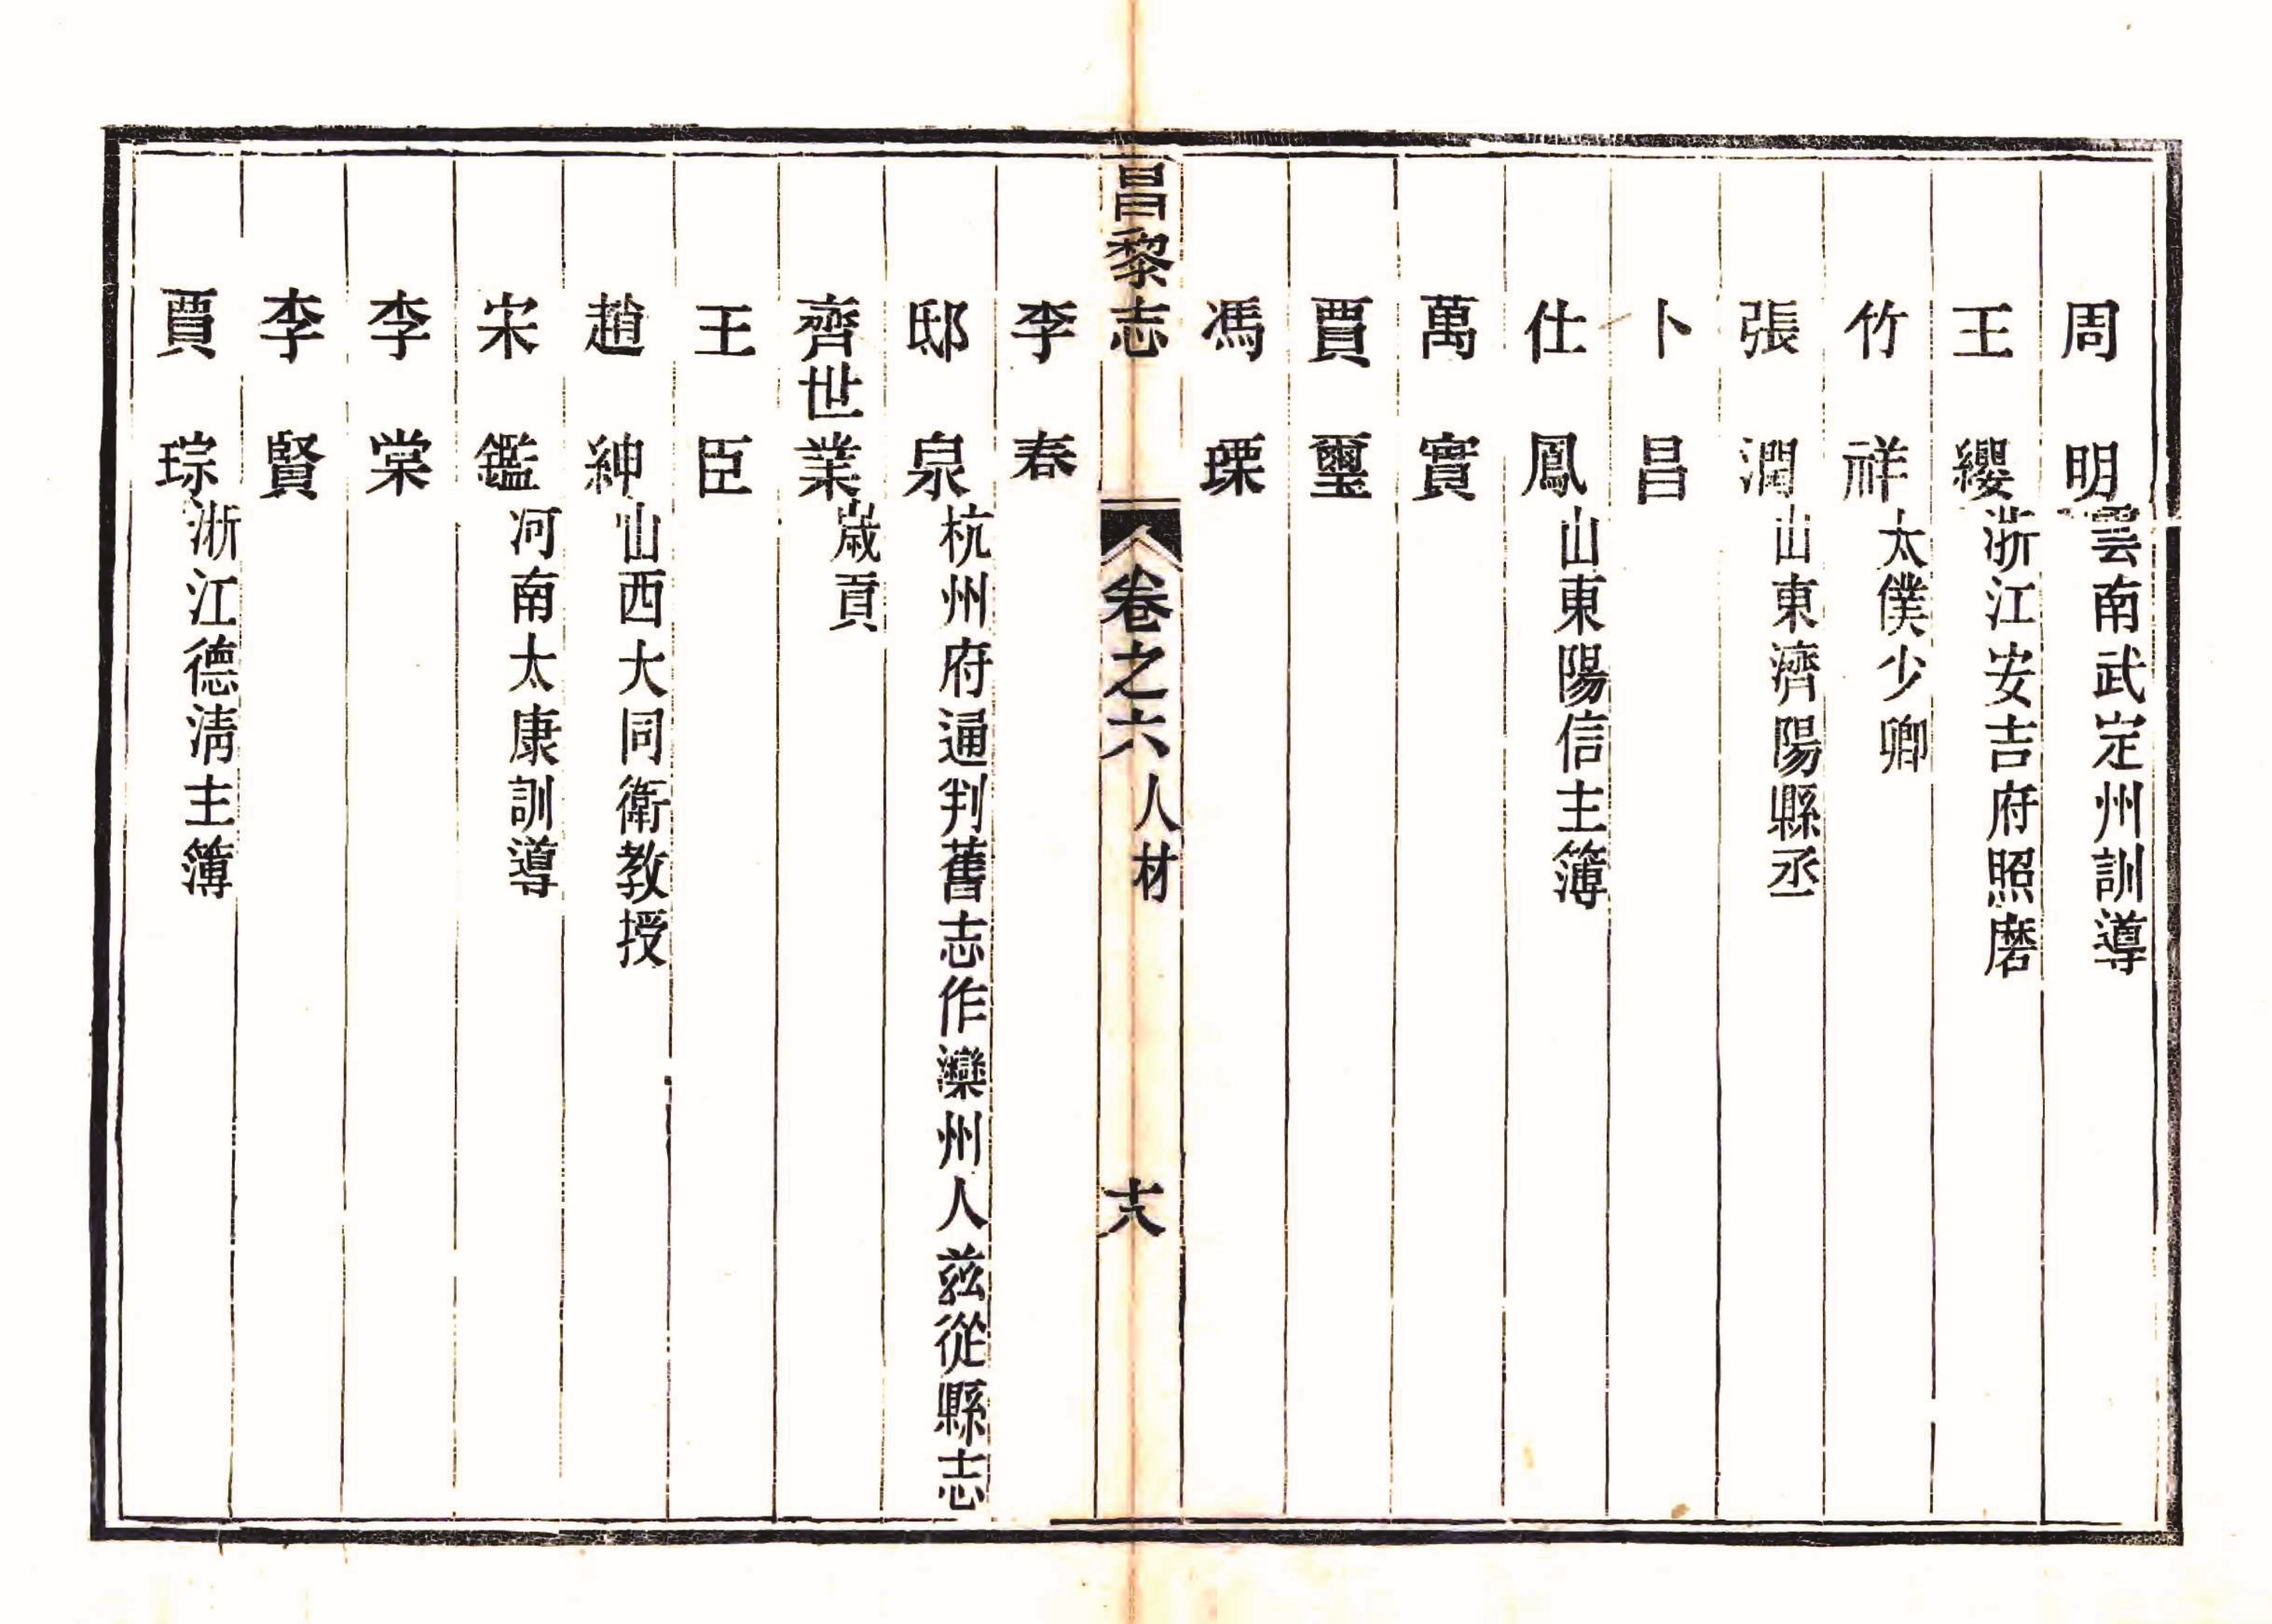 周明雲南武定州訓導
王纓浙江安吉府照磨
竹祥太僕少卿
張潤山東濟陽縣丞
卜昌
仕鳳山東陽信主簿
萬實
賈璽
馮瑮
昌黎志 卷之六 人材 十八
李春
邸泉杭州府通判舊志作灤州人茲從縣志
齊世業歲貢
王臣
趙紳山西大同衛教授
宋鑑河南太康訓導
李棠
李賢
賈琮浙江德清主簿